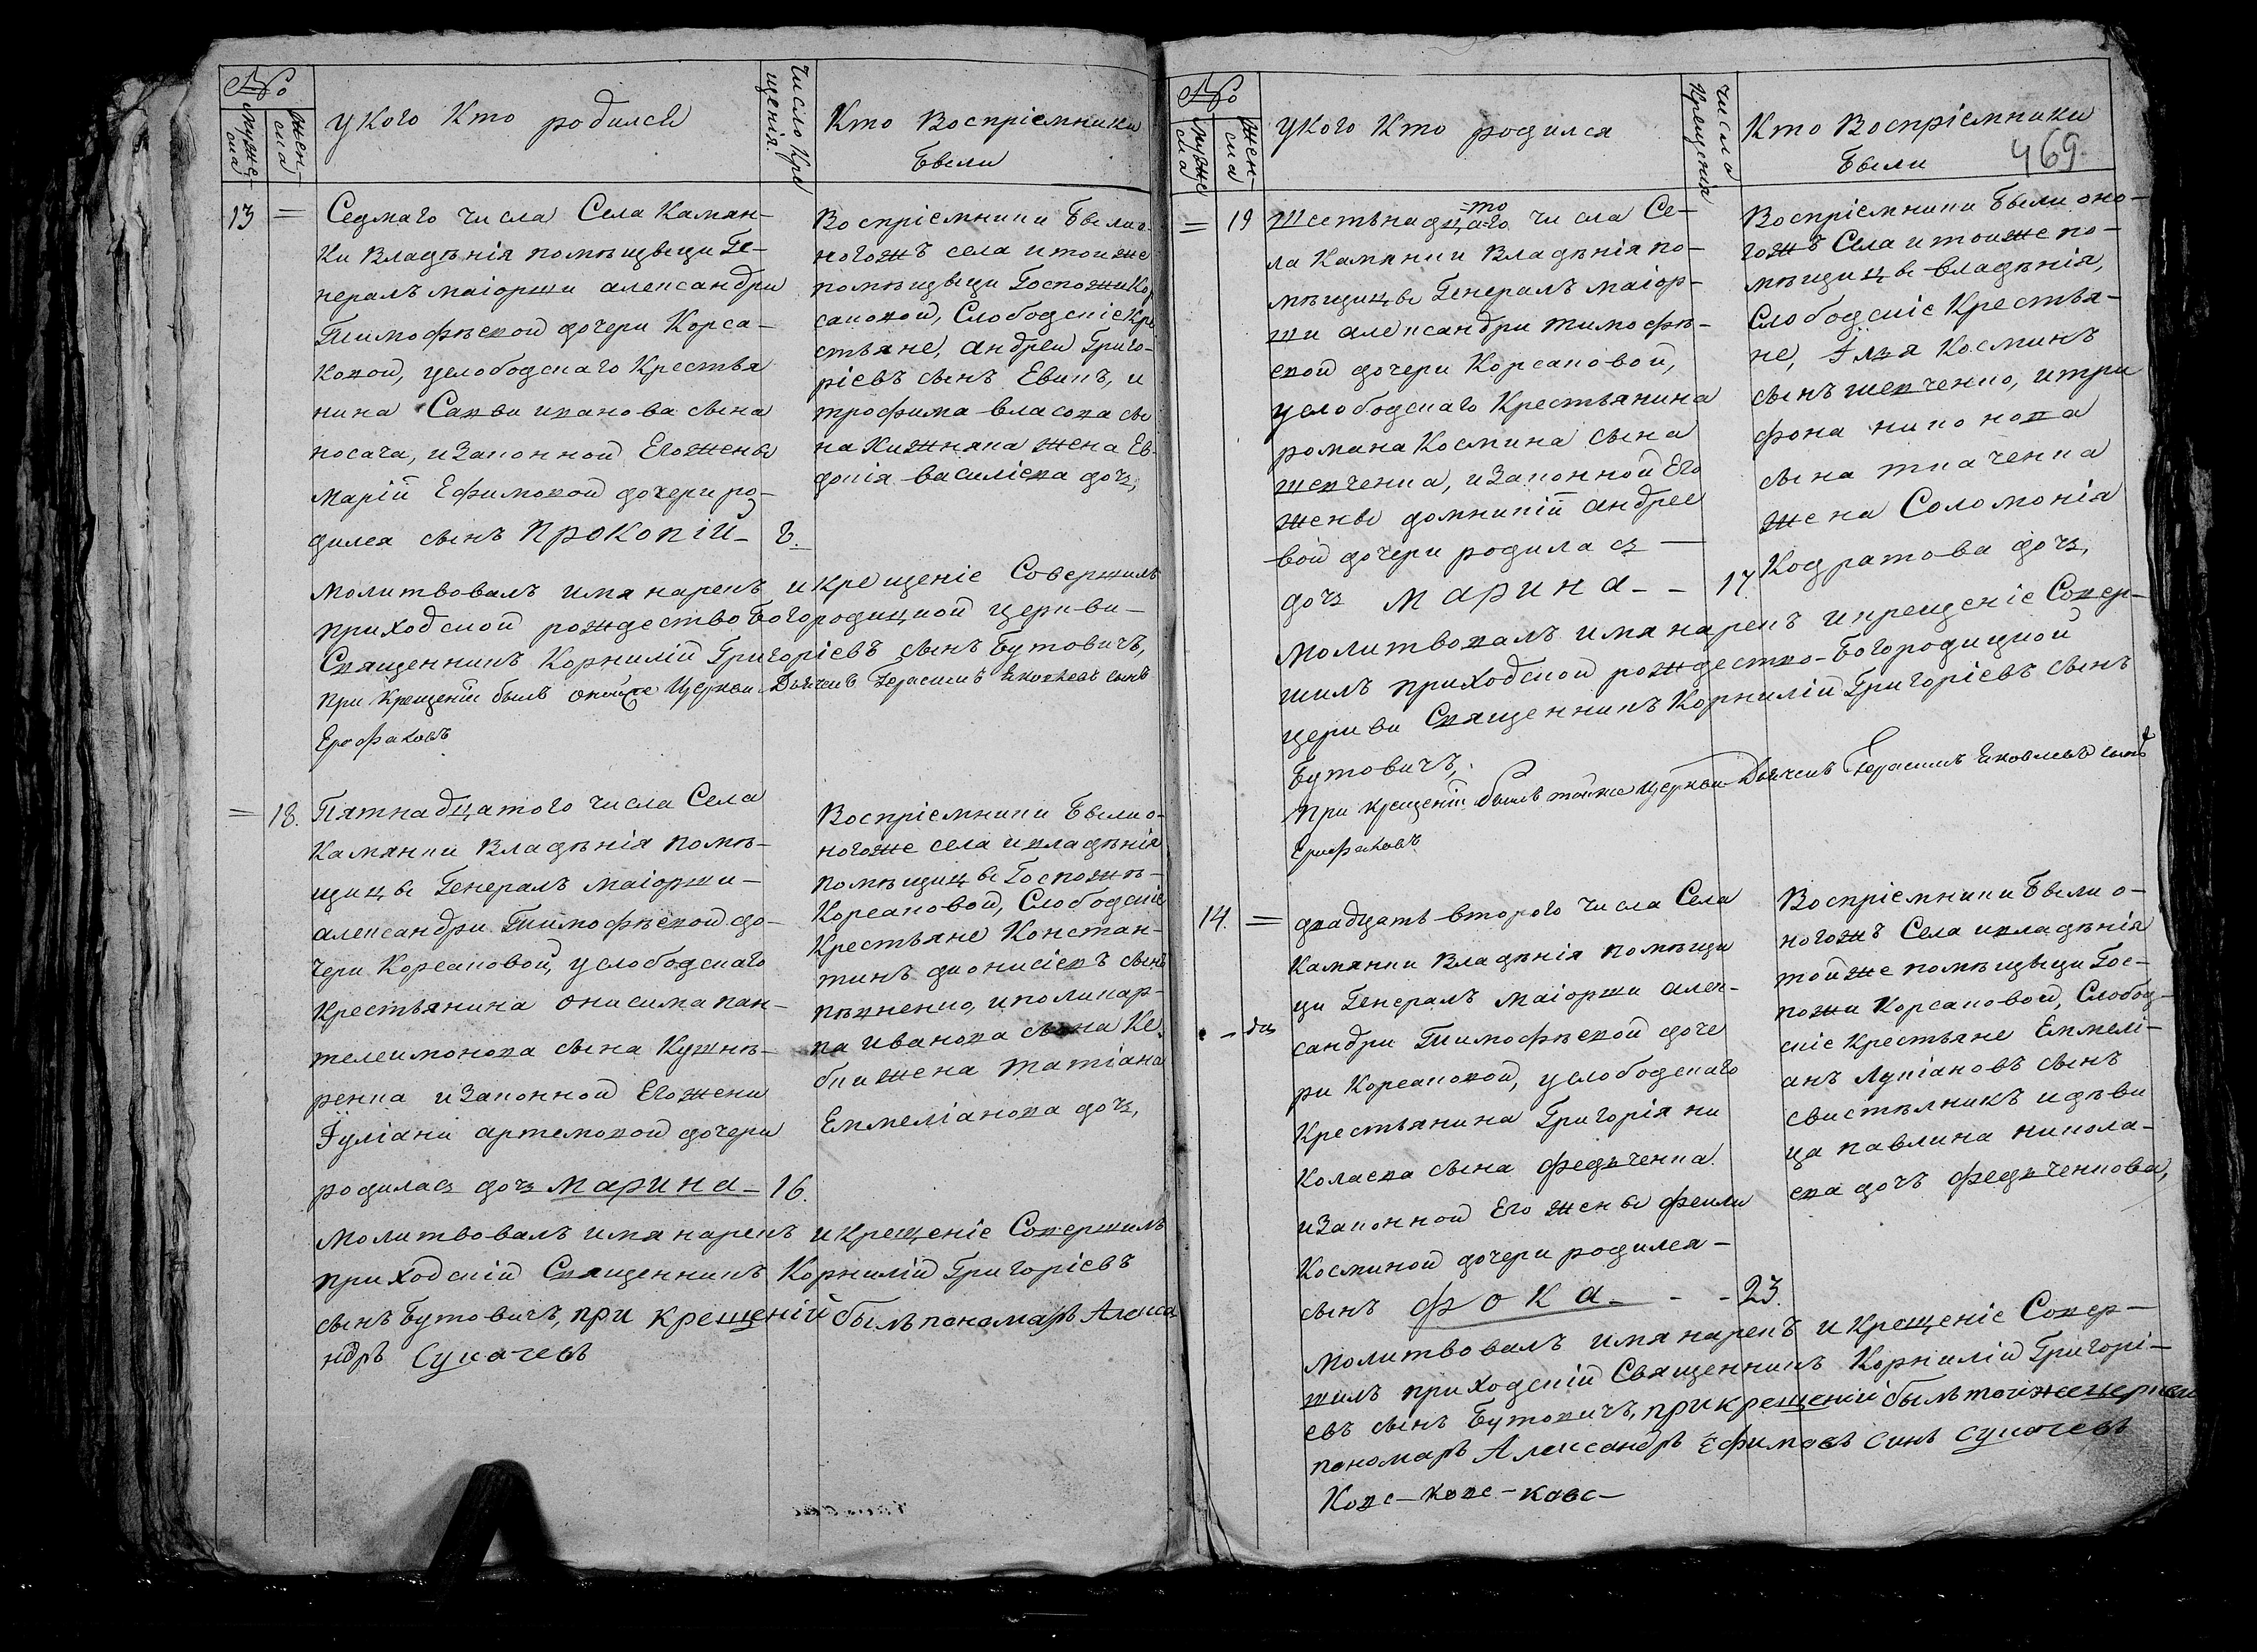 №
мужес-
ска
жен-
ска
У Кого Кто родился
Число Кре
щенія.
Кто Воспріемники
Были
13 =
Седмаго числа Села Камян-
ки Владѣнія помѣщыци Ге-
нералъ маіорши александри
Тимофѣевой дочери Корса-
ковой, услободскаго Крестья
нина Саввы иванова сына
носача, изаконной Его жены
Маріи Ефимовой дочери ро-
дился сынъ Прокопій - 8.
Воспріемники Были о-
ногожъ села и тои же
помѣщыци Госпожи Кор
саковой, Слободскіе Кре
стьяне, андреи Григо-
ріевъ сынъ Евинъ, и
трофима власова сы
на Кижняка жена Ев-
докія василіева дочь,
Молитвовалъ имя нарекъ и крещеніе Совершилъ
приходской рождество Богородицкой церкви-
Священникъ Корнилій Григоріевъ сынъ Бутовичъ,
При Крещеніи былъ оной же Церкви Дьячекъ Герасимъ Яковлевъ сынъ
Ерофаловъ
= 18.
Пятнадцатого числа Села
Камянки Владѣнія помѣ-
щицы Генералъ маіорши-
александри Тимофѣевой до-
чери Корсаковой, услободскаго
Крестьянина онисима пан-
телеимонова сына Кушнѣ-
ренка изаконной Его жени
Іуліани артемовой дочери
родилась дочь Марина - 16.
Воспріемники Были о-
ногоже села и владѣнія
помѣщицы Госпожѣ-
Корсаковой, Слободскіе
Крестьяне Констан-
тинъ діонисіевъ сынъ
и поликар-
па иванова сына Ке
бки жена татіана
Еммеліанова дочь,
Молитвовалъ имя нарекъ и крещеніе Совершилъ
приходскій Священникъ Корнилій Григоріевъ
сынъ Бутовичъ, при крещеніи былъ пономарь Алекса
ндръ Сукачевъ
№
муже
ска
жен-
ска
У Кого Кто родился
Числа
Крещенія
Кто Воспріемники
Были 469
= 19
=то
Шестьнадцаго числа Се-
ла Камянки Владѣнія по-
мѣщицы Генералъ маіор-
ши александри тимофѣ-
евой дочери Корсаковой,
услободскаго Крестьянина
романа Космина сына
шевченка, изаконной Его
жены домникіи андрее
вой дочери родилась -
дочь Марина - - 17.
Воспріемники Были оно-
гожъ Села и тои же по-
мѣщицы владѣнія,
Слободскіе Крестья-
не, Ілья Косминъ
сынъ шевченко, и три
фона никонова
сына ткаченка
жена Соломонія
Кодратова дочь,
Молитвовалъ имя нарекъ и крещеніе Совер-
шилъ приходской рождество-Богородицкой
церкви Священникъ Корнилій Григоріевъ сынъ
Бутовичъ,
При крещеніи былъ тойже Церкви Дьячекъ Герасимъ Яковлевъ сынъ
Ерофаловъ
14. =
двадцать второго числа Села
Камянки Владѣнія помѣщи
ци Генералъ маіорши алек-
сандри Тимофѣевой доче
ри Корсаковой, услободскаго
Крестьянина Григорія ни
колаева сына федъченка
изаконной Его жены феклы
Косминой дочери родился-
сынъ Фока - - - 23.
Воспріемники Были о-
ногожъ Села и владѣнія
той же помѣщыци Гос-
пожи Корсаковой, Слобод-
скіе Крестьяне Еммелі-
анъ Лукіановъ сынъ
свистѣлникъ и дѣви
ца павлина никола-
ева дочъ федъченкова,
Молитвовалъ имя нарекъ и крещеніе Совер-
шилъ приходскій Священникъ Корнилій Григорі-
евъ сынъ Бутовичъ, при крещеніи былъ тойже церкви
пономарь Александръ Ефимовъ синъ Сукачевъ